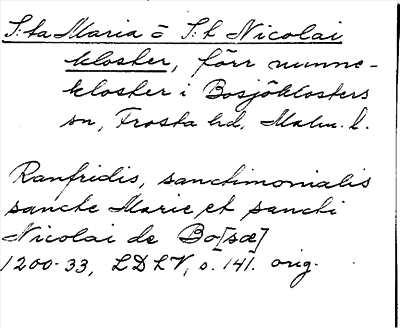 S:ta Maria o S:t Nicolai
kloster, förr nunne-
kloster i Bosjöklosters
sn, Frosta hd, Malm. l.
Ranfridis, sanctimonialis
sancte Marie et sancti
Nicolai de Bo[sæ]
1200-33, LDLV, s. 141. orig.